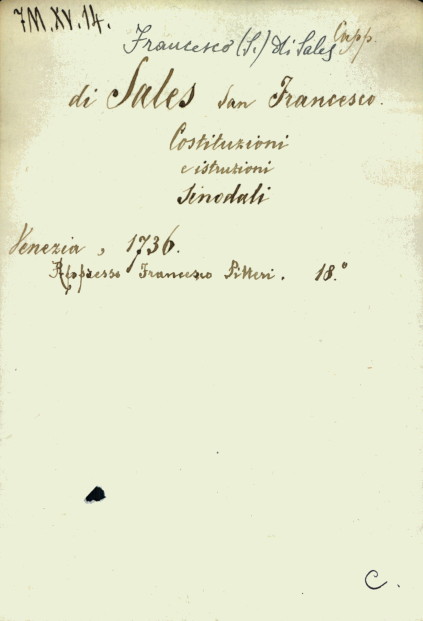 7M.XV.14.
Capp.
Francesco (S.) di Sales
di Sales San Francesco.
Costituzioni
e istruzioni
Sinodali
Venezia, 1736.
Appresso Francesco Pitteri. 18.°
C.